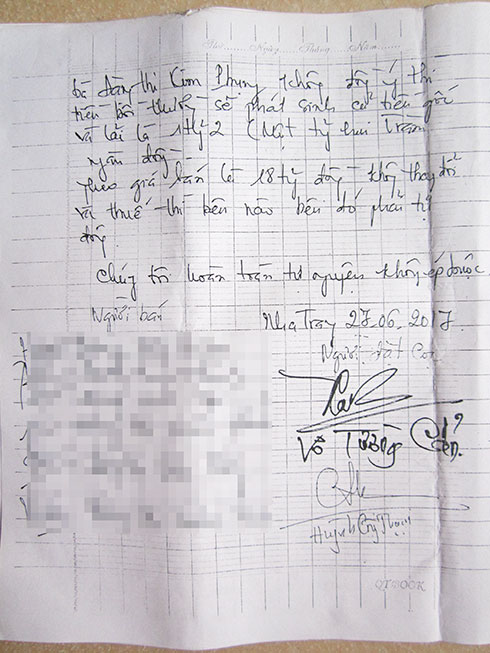 Thứ....... Ngày....... Tháng....... Năm.......
bà Đặng thị Kim Phụng không đồng ý thì
tiền bồi thường sẽ phát sinh cả tiền gốc
và lãi là 1 tỷ 2 (Một tỷ hai Trăm
ngàn đồng
theo giá bán là 18 tỷ đồng không thay đổi
và thuế thì bên nào bên đó phải tự
đóng.
Chúng tôi hoàn toàn tự nguyện không ép buộc
Người bán
Nha Trang 27.06.2017.
Người đặt Cọc
Võ Tường
Huỳnh